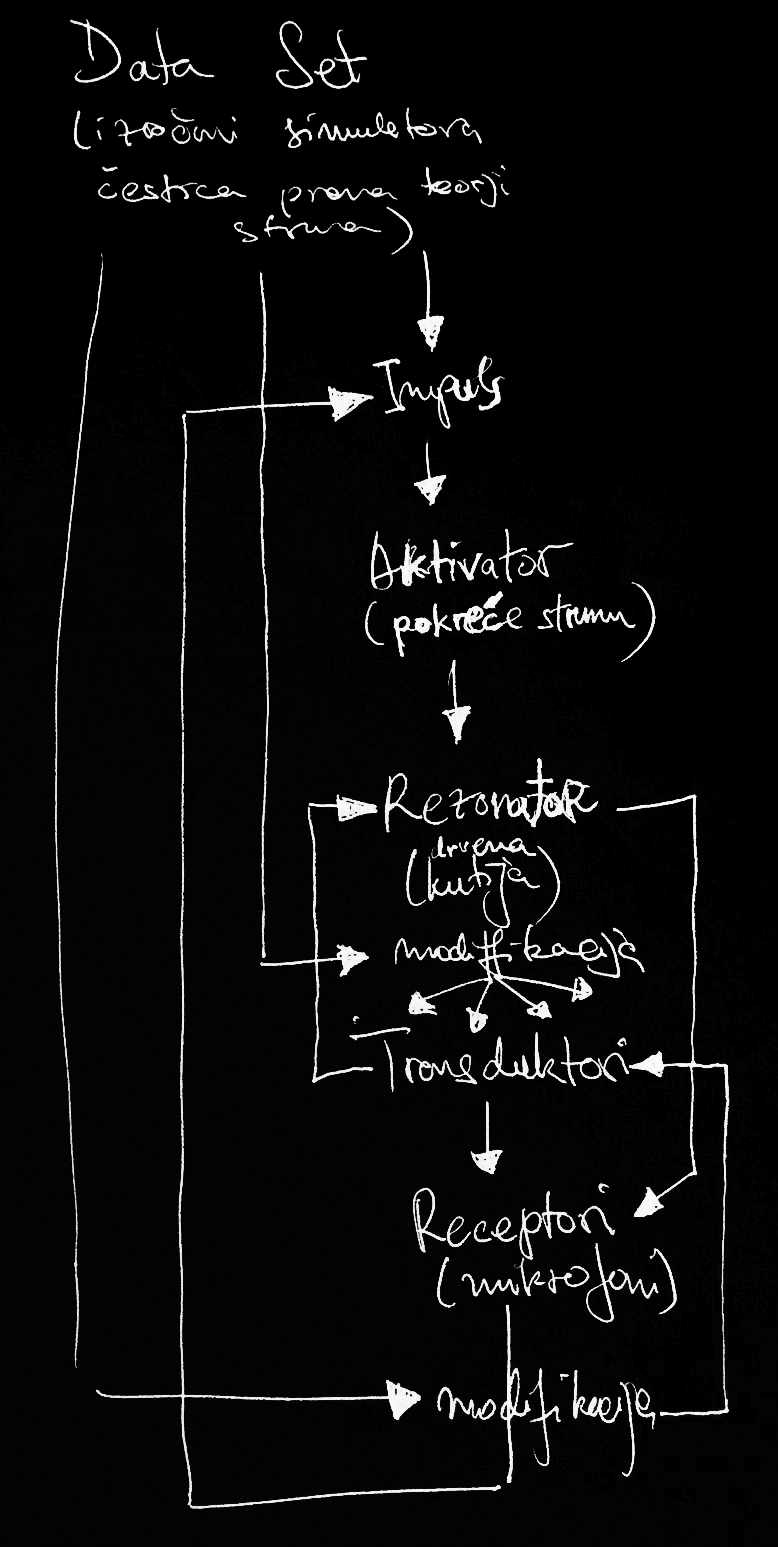 Data Set
simulatora
čestica prema teoriji
struna)
Impuls
Aktivator
(pokreće strunu)
Rezonator
(drvena
kutija)
modifikacija
Transduktori
Receptori
(mikrofoni)
modifikacija